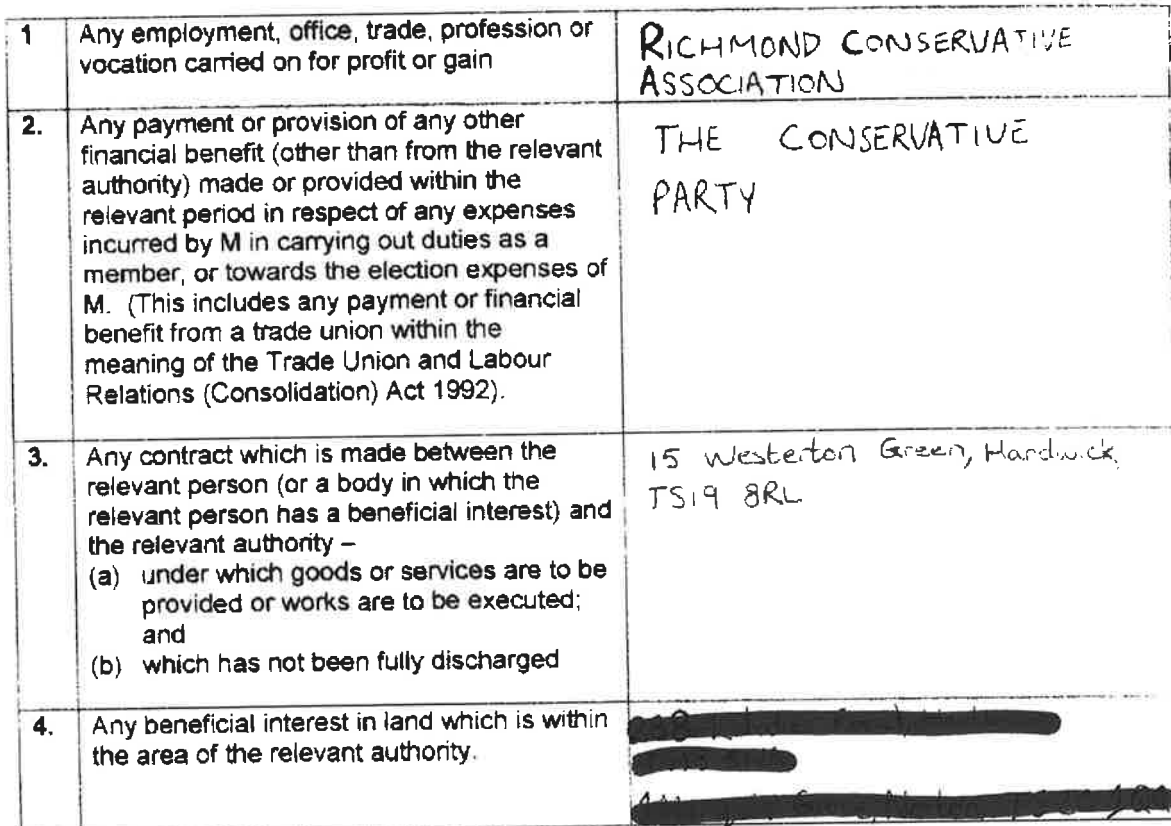 1 Any employment, office, trade, profession or
vocation carried on for profit or gain
RICHMOND CONSERVATIVE
ASSOCIATION
2. Any payment or provision of any other
financial benefit (other than from the relevant
authority) made or provided within the
relevant period in respect of any expenses
incurred by M in carrying out duties as a
member, or towards the election expenses of
M. (This includes any payment or financial
benefit from a trade union within the
meaning of the Trade Union and Labour
Relations (Consolidation) Act 1992).
THE CONSERVATIVE
PARTY
3. Any contract which is made between the
relevant person (or a body in which the
relevant person has a beneficial interest) and
the relevant authority –
(a) under which goods or services are to be
provided or works are to be executed;
and
(b) which has not been fully discharged
15 Westerton Green, Hardwick,
TS19 8RL
4. Any beneficial interest in land which is within
the area of the relevant authority.